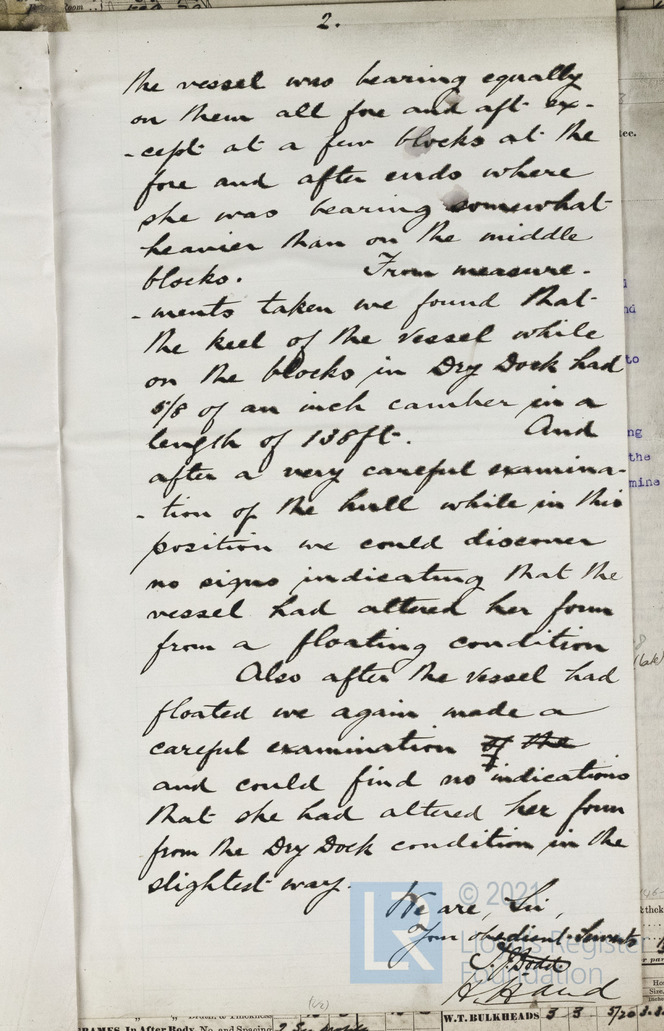 2.
the vessel was bearing equally
on them all fore and aft ex-
-cept at a few blocks at the
fore and after ends where
she was bearing somewhat
heavier than on the middle
blocks. From measure-
-ments taken we found that
the keel of the vessel while
on the blocks in Dry Dock had
5/8 of an inch camber in a
length of 138ft. And
after a very careful examina-
-tion of the hull while in this
position we could discover
no signs indicating that the
vessel had altered her form
from a floating condition
Also after the vessel had
floated we again made a
careful examination of the
and could find no indications
that she had altered her form
from the Dry Dock condition in the
slightest way.
We are, Sir,
Your obedient Servants
© 2021
Lloyd's Register
Foundation
W.T. BULKHEADS 3 3 5/20
FRAMES, In After Body, No. and Spacing